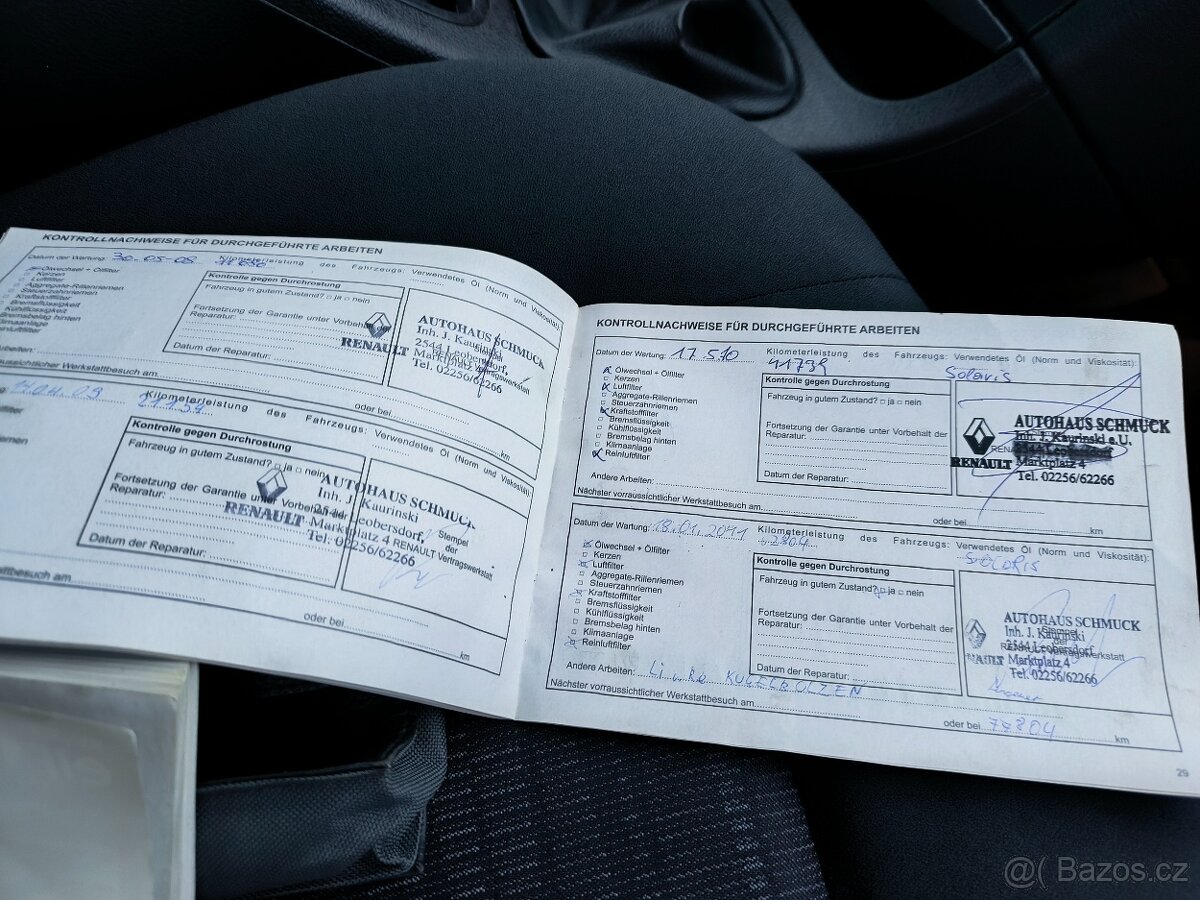 KONTROLLNACHWEISE FÜR DURCHGEFÜHRTE ARBEITEN
Datum der Wartung: 30.05.08 Kilometerleistung des Fahrzeugs: Verwendetes Öl (Norm und Viskosität):
Ölwechsel + Ölfilter
Kerzen
Luftfilter
Aggregate-Rillenriemen
Steuerzahnriemen
Kraftstofffilter
Bremsflüssigkeit
Kühlflüssigkeit
Bremsbelag hinten
Klimaanlage
Reinluftfilter
Kontrolle gegen Durchrostung
Fahrzeug in gutem Zustand? ja nein
Fortsetzung der Garantie unter Vorbehalt
Reparatur:
Datum der Reparatur:
RENAULT
AUTOHAUS SCHMUCK
Inh. J. Kaurinski
2544 Leobersdorf,
Marktplatz 4
Tel. 02256/62266
aussichtlicher Werkstattbesuch am
oder bei km
Kilometerleistung des Fahrzeugs: Verwendetes Öl (Norm und Viskosität):
Kontrolle gegen Durchrostung
Fahrzeug in gutem Zustand? ja nein
Fortsetzung der Garantie unter Vorbehalt der
Reparatur:
Datum der Reparatur:
RENAULT
AUTOHAUS SCHMUCK
Inh. J. Kaurinski
2544 Leobersdorf,
Marktplatz 4
Tel. 02256/62266
Stempel
der
RENAULT Vertragswerkstatt
stattbesuch am
oder bei km
KONTROLLNACHWEISE FÜR DURCHGEFÜHRTE ARBEITEN
Datum der Wartung: 17.5.10 Kilometerleistung des Fahrzeugs: Verwendetes Öl (Norm und Viskosität):
41739 Solaris
Ölwechsel + Ölfilter
Kerzen
Luftfilter
Aggregate-Rillenriemen
Steuerzahnriemen
Kraftstofffilter
Bremsflüssigkeit
Kühlflüssigkeit
Bremsbelag hinten
Klimaanlage
Reinluftfilter
Kontrolle gegen Durchrostung
Fahrzeug in gutem Zustand? ja nein
Fortsetzung der Garantie unter Vorbehalt der
Reparatur:
Datum der Reparatur:
RENAULT
AUTOHAUS SCHMUCK
Inh. J. Kaurinski e.U.
2544 Leobersdorf
Marktplatz 4
Tel. 02256/62266
Andere Arbeiten:
Nächster vorraussichtlicher Werkstattbesuch am
oder bei km
Datum der Wartung: 18.01.2011 Kilometerleistung des Fahrzeugs: Verwendetes Öl (Norm und Viskosität):
SOLARIS
Ölwechsel + Ölfilter
Kerzen
Luftfilter
Aggregate-Rillenriemen
Steuerzahnriemen
Kraftstofffilter
Bremsflüssigkeit
Kühlflüssigkeit
Bremsbelag hinten
Klimaanlage
Reinluftfilter
Kontrolle gegen Durchrostung
Fahrzeug in gutem Zustand? ja nein
Fortsetzung der Garantie unter Vorbehalt der
Reparatur:
Datum der Reparatur:
RENAULT
AUTOHAUS SCHMUCK
Inh. J. Kaurinski
2544 Leobersdorf
Marktplatz 4
Tel. 02256/62266
Andere Arbeiten: Linke KUGELBOLZEN
Nächster vorraussichtlicher Werkstattbesuch am
oder bei km
29
@( Bazos.cz